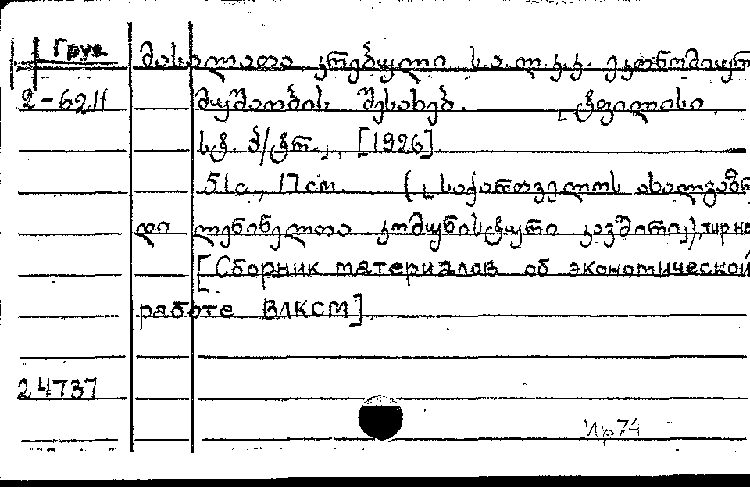 Груз. მასალათა კრებული ს.ა.ლ.კ.კ. ეკონომიურ
2-6211 მუშაობის შესახებ. [ტფილისი,
სტ. პ/ტრ., [1926].
51с., 17см. (საქართველოს ახალგაზრ
და ლენინელთა კომუნისტური კავშირი), тир не
[Сборник материалов об экономической
работе ВЛКСМ]
24737
Ир74